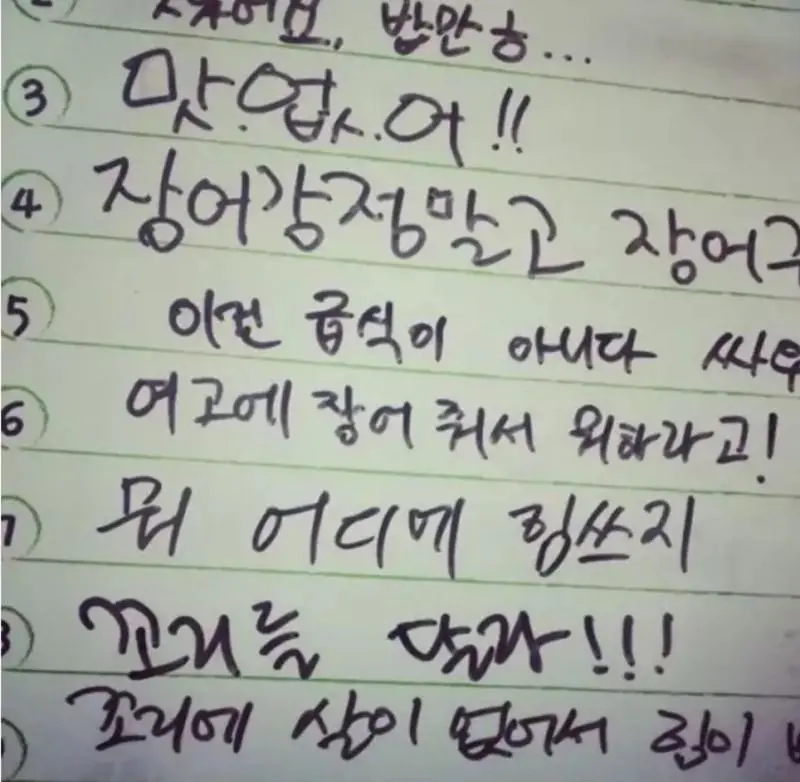 밥만 능...
③ 맛.없.어!!
④ 장어강정말고 장어구
⑤ 이건 급식이 아니다 싸우
⑥ 여고에 장어 줘서 뭐하라고!
⑦ 뭐 어디에 힘쓰지
⑧ 꼬리를 달라!!!
꼬리에 살이 없어서 힘이